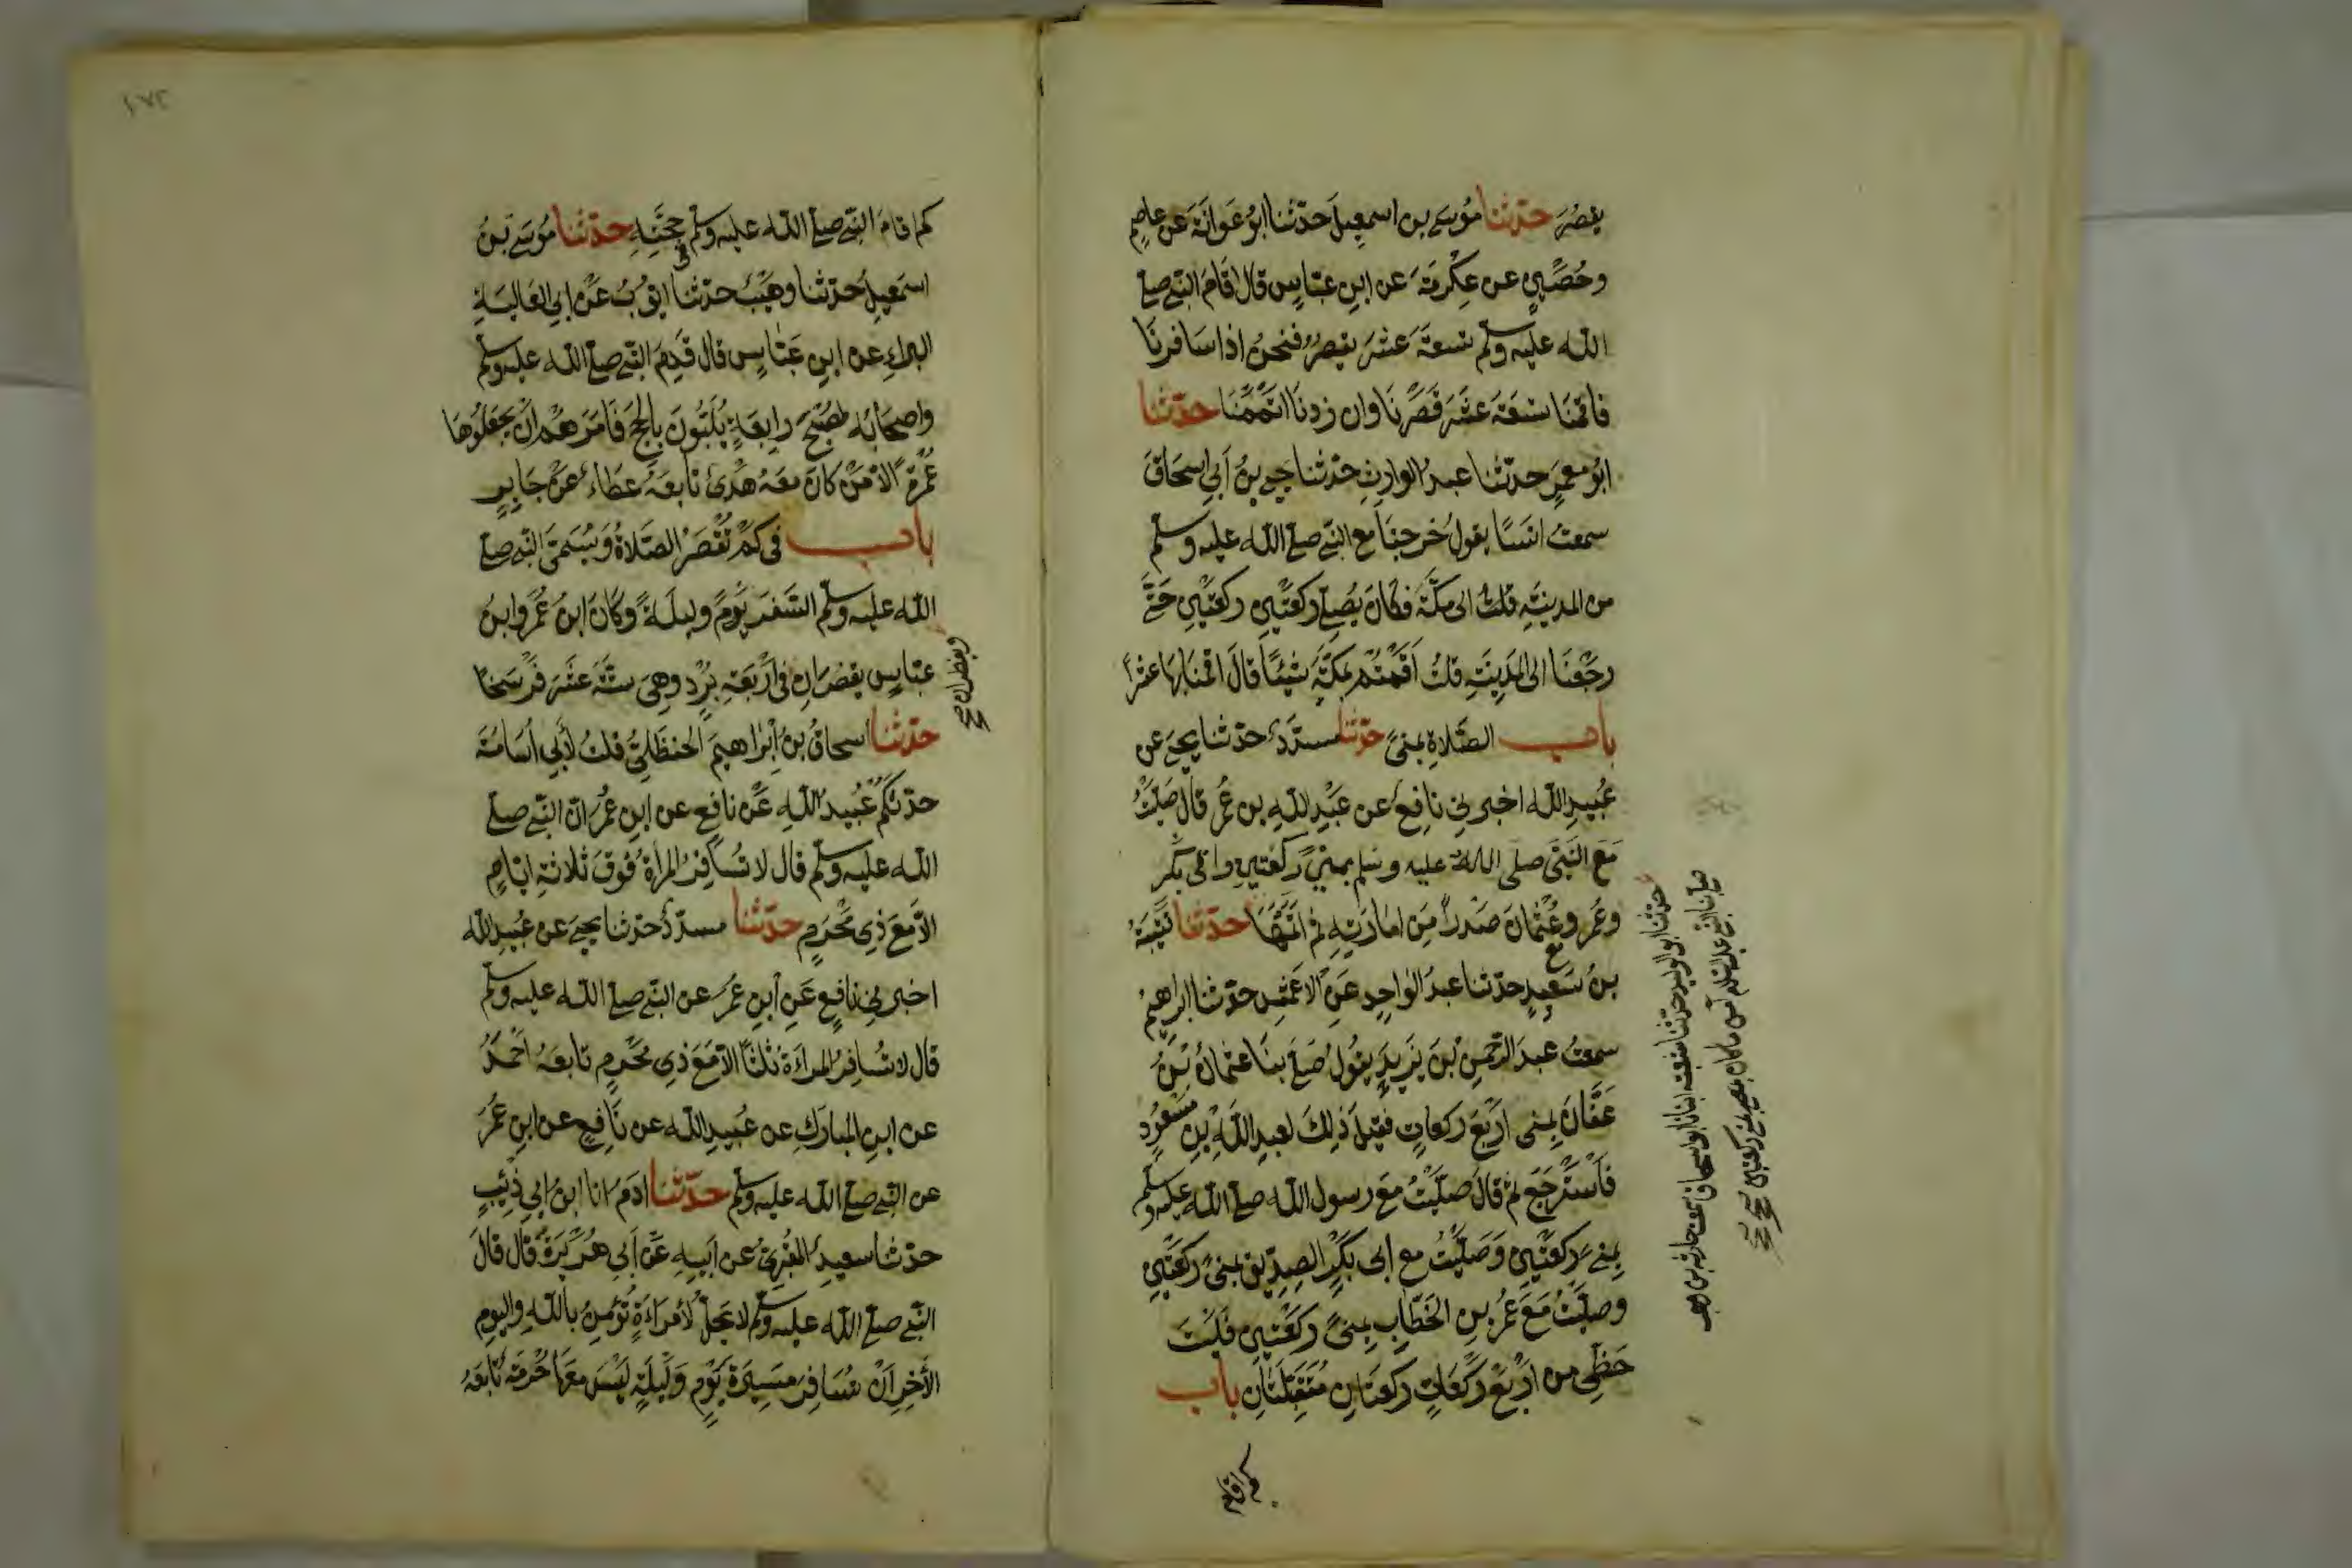 يقصر حدثنا موسى بن اسمعيل حدثنا ابو عوانة عن عاصم
وحصين عن عكرمة عن ابن عباس قال اقام النبي صلى
الله عليه وسلم تسعة عشر يقصر فنحن اذا سافرنا
فاقمنا تسعة عشر قصرنا وان زدنا اتممنا حدثنا
ابو معمر حدثنا عبد الوارث حدثنا يحيى بن أبي اسحاق
سمعت انسا يقول خرجنا مع النبي صلى الله عليه وسلم
من المدينة قلت الى مكة فكان يصلي ركعتين ركعتين حتى
رجعنا الى المدينة قلت أقمتم بمكة شيئا قال اقمنا بها عشرا
باب الصلاة بمنى حدثنا مسدد حدثنا يحيى عن
عبيد الله اخبرني نافع عن عبد الله بن عمر قال صليت
مع النبي صلى الله عليه وسلم بمنى ركعتين وابي بكر
وعمر وعثمان صدرا من امارته ثم اتمها حدثنا قتيبة
بن سعيد حدثنا عبد الواحد عن الاعمش حدثنا ابراهيم
سمعت عبد الرحمن بن يزيد يقول صلى بنا عثمان بن
عفان بمنى اربع ركعات فقيل ذلك لعبد الله بن مسعود
فاسترجع ثم قال صليت مع رسول الله صلى الله عليه وسلم
بمنى ركعتين وصليت مع ابى بكر الصديق بمنى ركعتين
وصليت مع عمر بن الخطاب بمنى ركعتين فليت
حظي من اربع ركعات ركعتان متقبلتان باب
كم اقام
حدثنا ابو الوليد حدثنا شعبة انبانا ابو اسحاق سمعت حارثة بن وهب
صلى بنا النبي عليه السلام آمن ما كان بمنى ركعتين صح
١٧٢
كم اقام النبي صلى الله عليه وسلم في حجته حدثنا موسى بن
اسمعيل حدثنا وهيب حدثنا ايوب عن ابي العالية
البراء عن ابن عباس قال قدم النبي صلى الله عليه وسلم
واصحابه لصبح رابعة يلبون بالحج فامرهم ان يجعلوها
عمرة الا من كان معه هدى تابعه عطاء عن جابر
باب في كم تقصر الصلاة ويسمى النبي صلى
الله عليه وسلم السفر يوما وليلة وكان ابن عمر وابن
عباس يقصران في أربعة برد وهي ستة عشر فرسخا
ويفطران صح
حدثنا اسحاق بن إبراهيم الحنظلي قلت لأبي أسامة
حدثكم عبيد الله عن نافع عن ابن عمر ان النبي صلى
الله عليه وسلم قال لا تسافر المرأة فوق ثلاثة ايام
الا مع ذي محرم حدثنا مسدد حدثنا يحيى عن عبيد الله
اخبرني نافع عن ابن عمر عن النبي صلى الله عليه وسلم
قال لا تسافر المراة ثلثا الا مع ذي محرم تابعه احمد
عن ابن المبارك عن عبيد الله عن نافع عن ابن عمر
عن النبي صلى الله عليه وسلم حدثنا ادم انا ابن ابي ذئب
حدثنا سعيد المقبري عن ابيه عن أبي هريرة قال قال
النبي صلى الله عليه وسلم لا يحل لامراءة تؤمن بالله واليوم
الأخر أن تسافر مسيرة يوم وليلة ليس معها حرمة تابعه